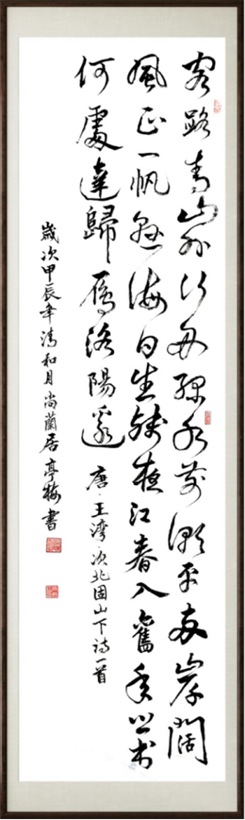 客路青山外行舟綠水前潮平兩岸闊
風正一帆懸海日生殘夜江春入舊年鄉書
何處達歸雁洛陽邊 唐·王灣·次北固山下詩一首
歲次甲辰年清和月尚蘭居亭梅書